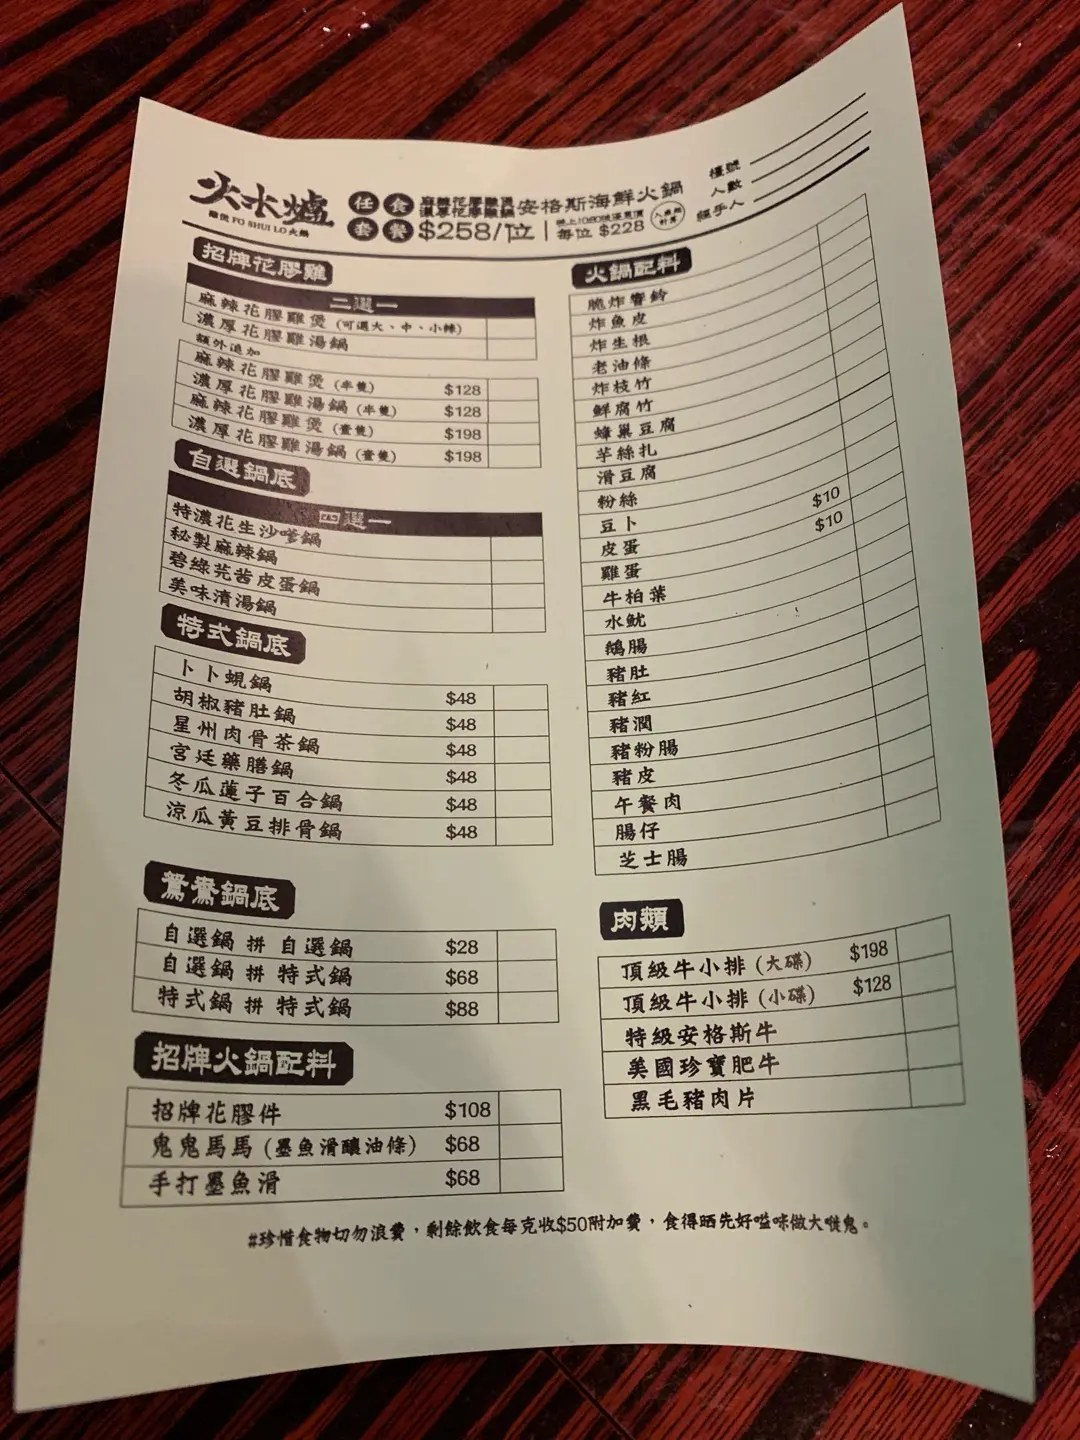 火水爐
雞煲 FO SHUI LO 火鍋
任食套餐
麻辣花膠雞煲
濃厚花膠雞鍋
安格斯海鮮火鍋
$258/位
每位 $228
檯號
人數
經手人
招牌花膠雞
二選一
麻辣花膠雞煲 (可選大、中、小辣)
濃厚花膠雞湯鍋
額外追加
麻辣花膠雞煲 (半隻) $128
濃厚花膠雞湯鍋 (半隻) $128
麻辣花膠雞煲 (壹隻) $198
濃厚花膠雞湯鍋 (壹隻) $198
自選鍋底
四選一
特濃花生沙嗲鍋
秘製麻辣鍋
碧綠芫茜皮蛋鍋
美味清湯鍋
特式鍋底
卜卜蜆鍋 $48
胡椒豬肚鍋 $48
星州肉骨茶鍋 $48
宮廷藥膳鍋 $48
冬瓜蓮子百合鍋 $48
涼瓜黃豆排骨鍋 $48
鴛鴦鍋底
自選鍋 拼 自選鍋 $28
自選鍋 拼 特式鍋 $68
特式鍋 拼 特式鍋 $88
招牌火鍋配料
招牌花膠件 $108
鬼鬼馬馬 (墨魚滑釀油條) $68
手打墨魚滑 $68
火鍋配料
脆炸響鈴
炸魚皮
炸生根
老油條
炸枝竹
鮮腐竹
蜂巢豆腐
芋絲扎
滑豆腐
粉絲
豆卜
皮蛋 $10
雞蛋 $10
牛柏葉
水魷
鵝腸
豬肚
豬紅
豬潤
豬粉腸
豬皮
午餐肉
腸仔
芝士腸
肉類
頂級牛小排 (大碟) $198
頂級牛小排 (小碟) $128
特級安格斯牛
美國珍寶肥牛
黑毛豬肉片
#珍惜食物切勿浪費，剩餘飲食每克收$50附加費，食得晒先好嗌咪做大嘥鬼。